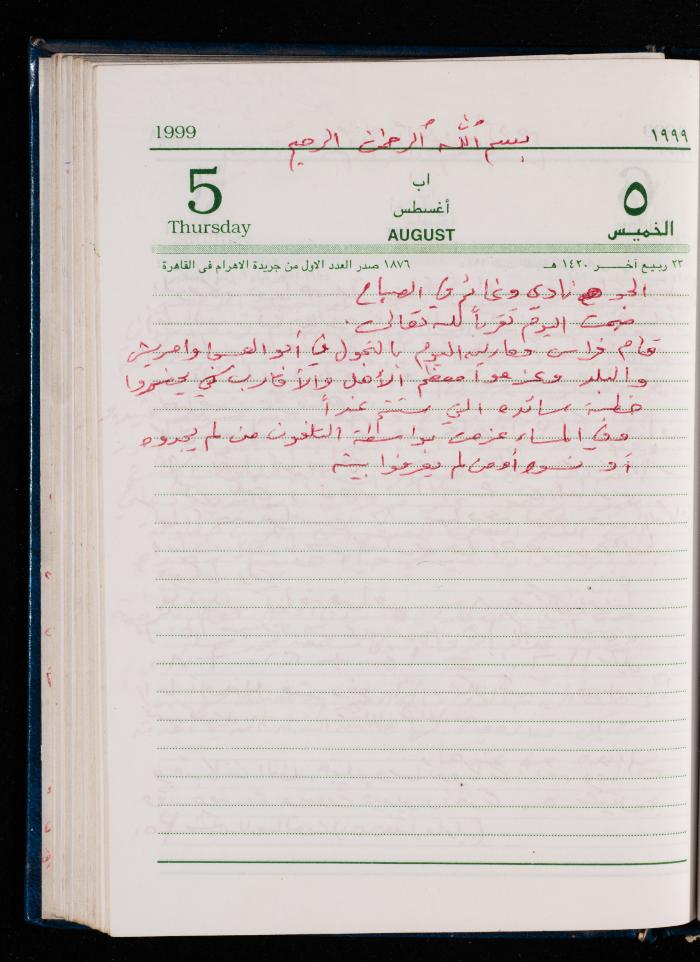 بسم الله الرحمن الرحيم
1999 ١٩٩٩
5 اب ٥
Thursday أغسطس الخميس
AUGUST
٢٣ ربيع آخر ١٤٢٠ هـ ١٨٧٦ صدر العدد الاول من جريدة الاهرام فى القاهرة
الجو نادي وغائم في الصباح
صمت اليوم تقرباً لله تعالى.
قام فراس وفارس اليوم بالتجول في أبو
والبلد وعزموا معظم الأهل والأقارب كي يحضروا
خطبة سائده التي ستتم غداً
وفي المساء عزمت بواسطة التلفون من لم يجدوه
أو نسوه أو من لم يعرفوا بيته